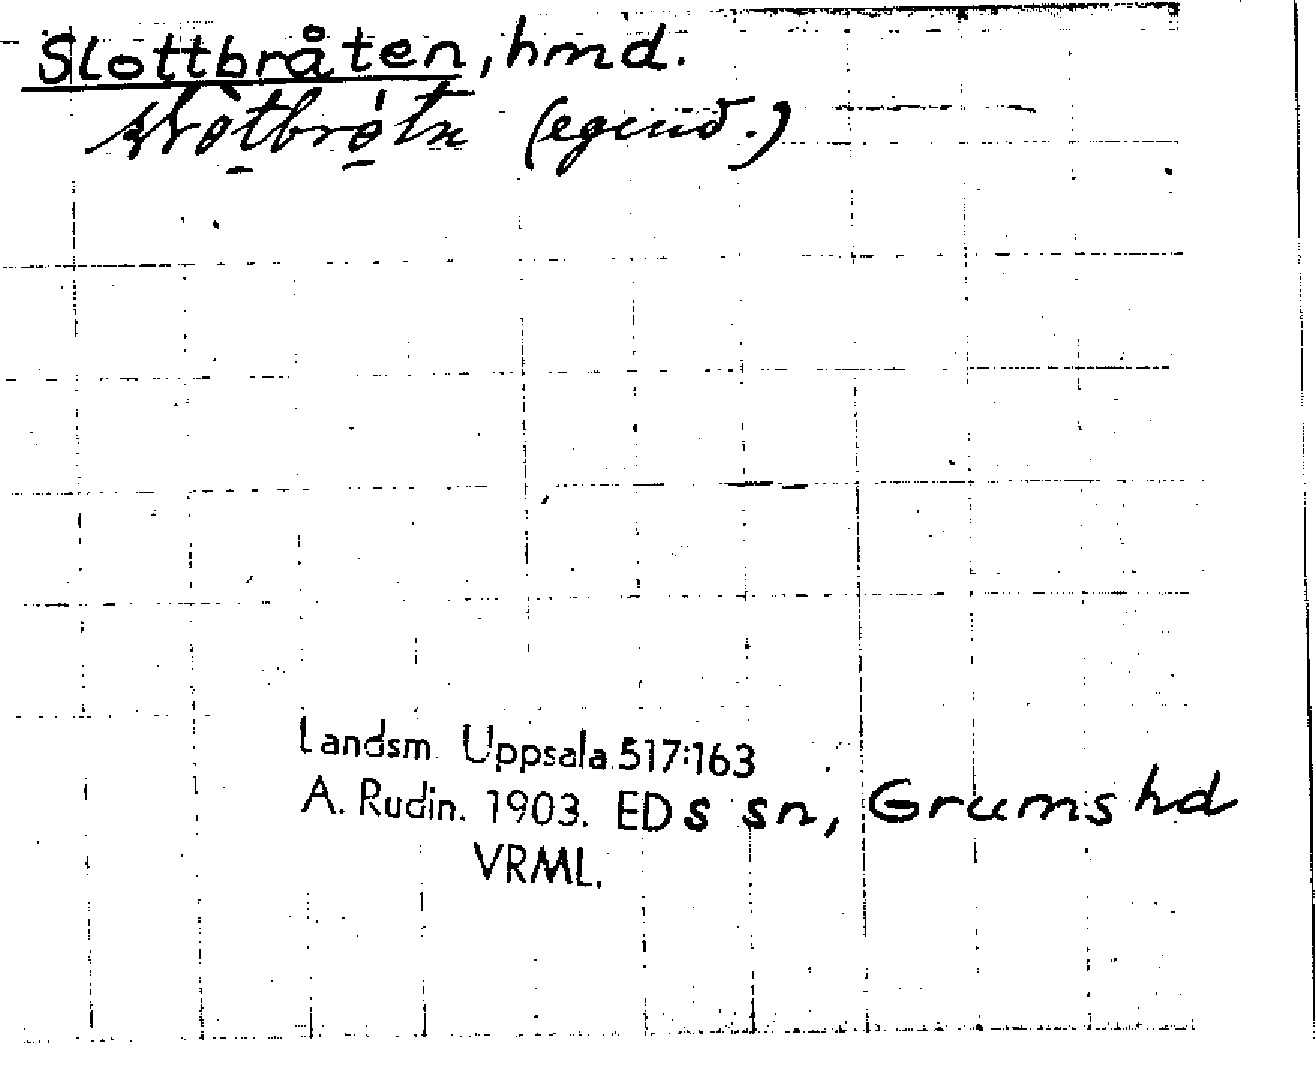 Slottbråten, hmd.
(egend.)
Landsm. Uppsala 517:163
A. Rudin. 1903. EDs sn, Grums hd
VRML.